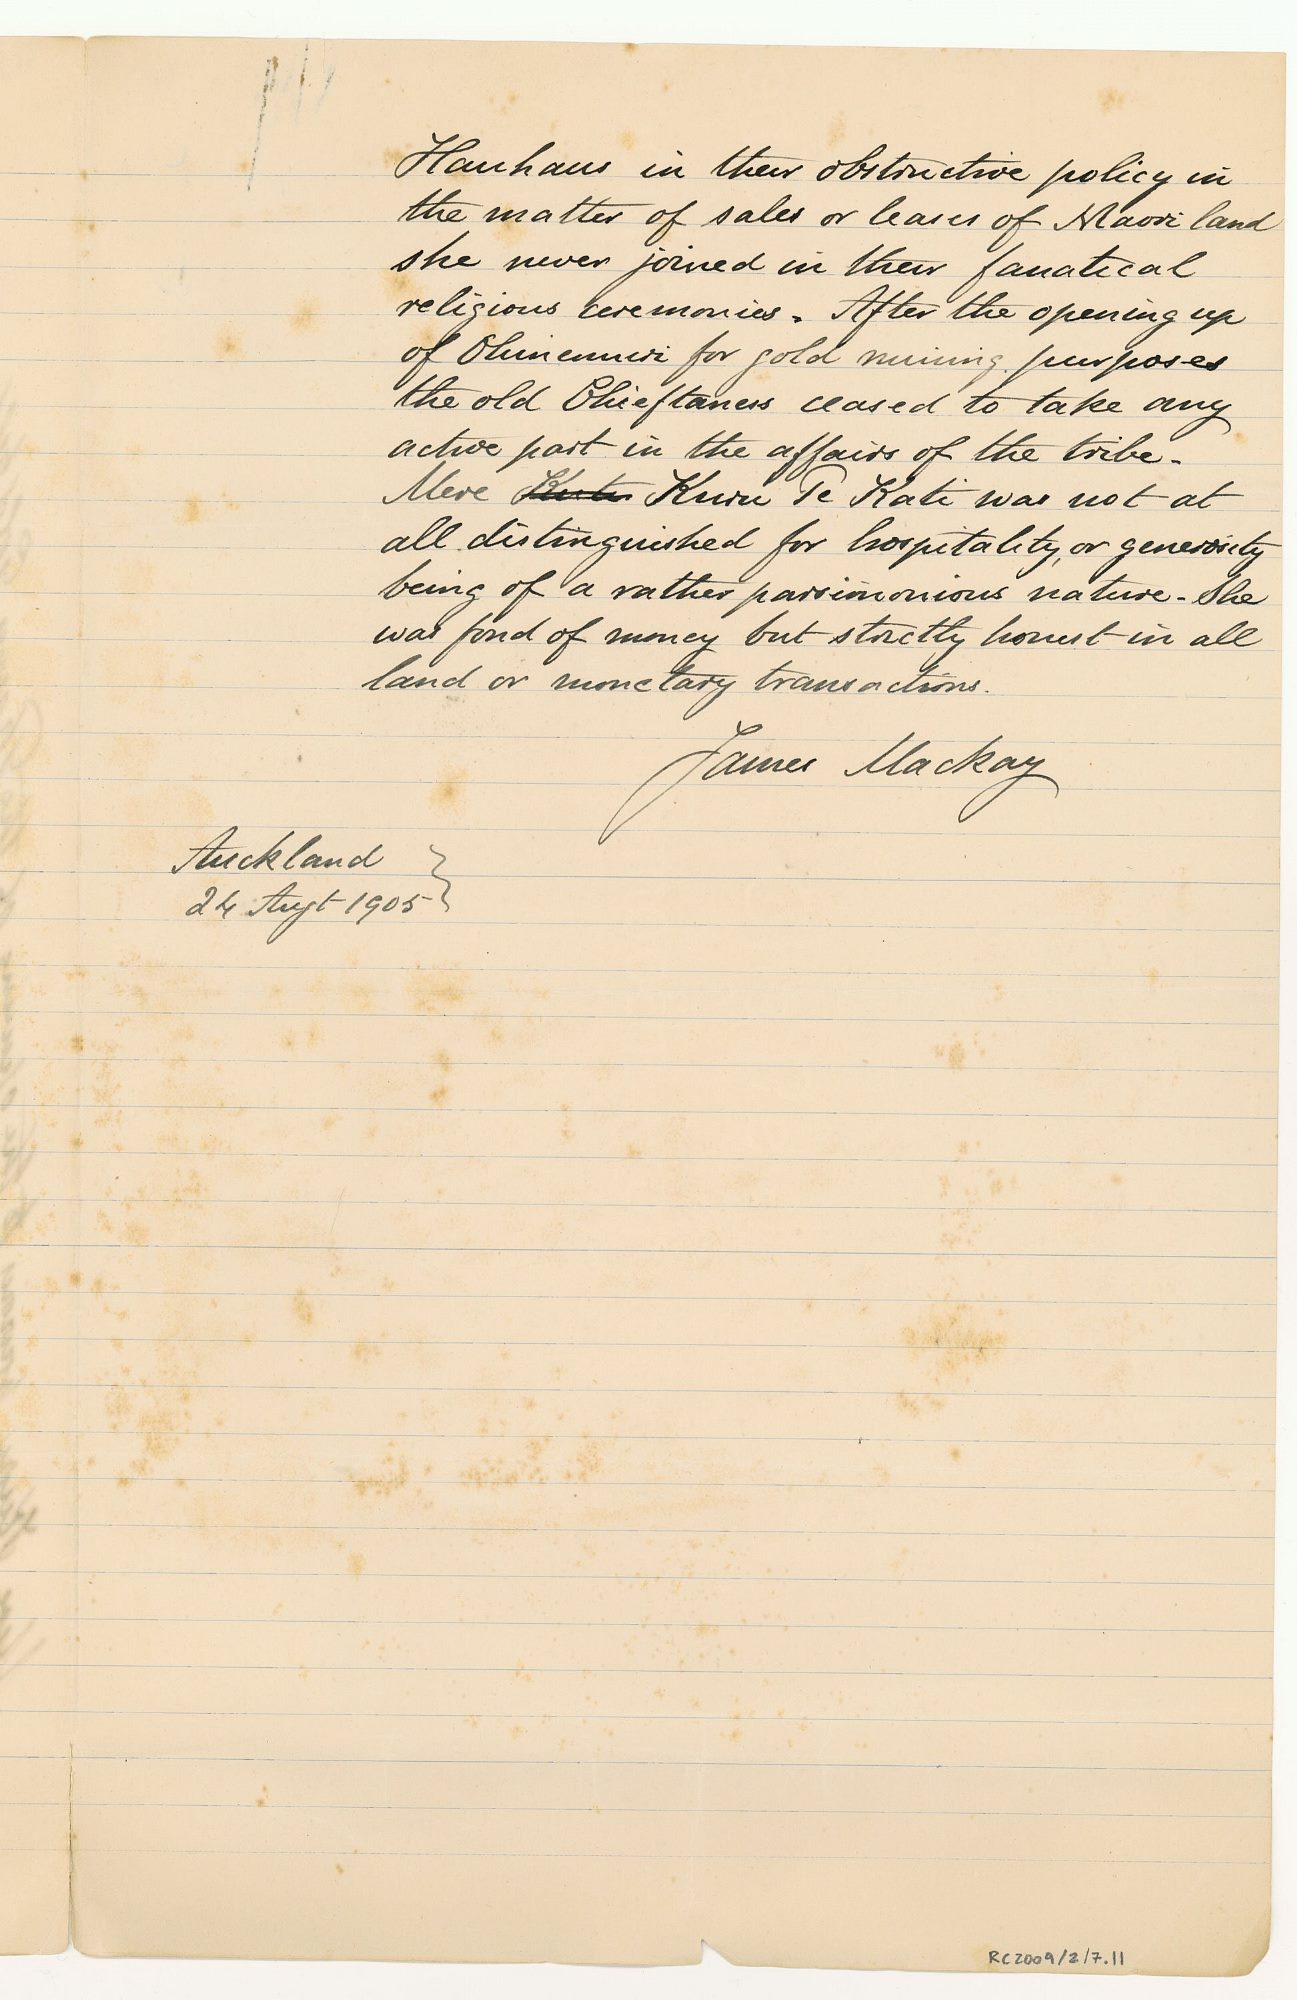 Hauhaus in their obstructive policy in
the matter of sales or leases of Maori land
she never joined in their fanatical
religious ceremonies. After the opening up
of Ohinemuri for gold mining purposes
the old Chieftaness ceased to take any
active part in the affairs of the tribe.
Mere Kuru Te Kati was not at
all distinguished for hospitality, or generosity
being of a rather parsimonious nature. She
was fond of money but strictly honest in all
land or monetary transactions.
James Mackay
Auckland
24 Augt 1905
RC2009/2/7.11